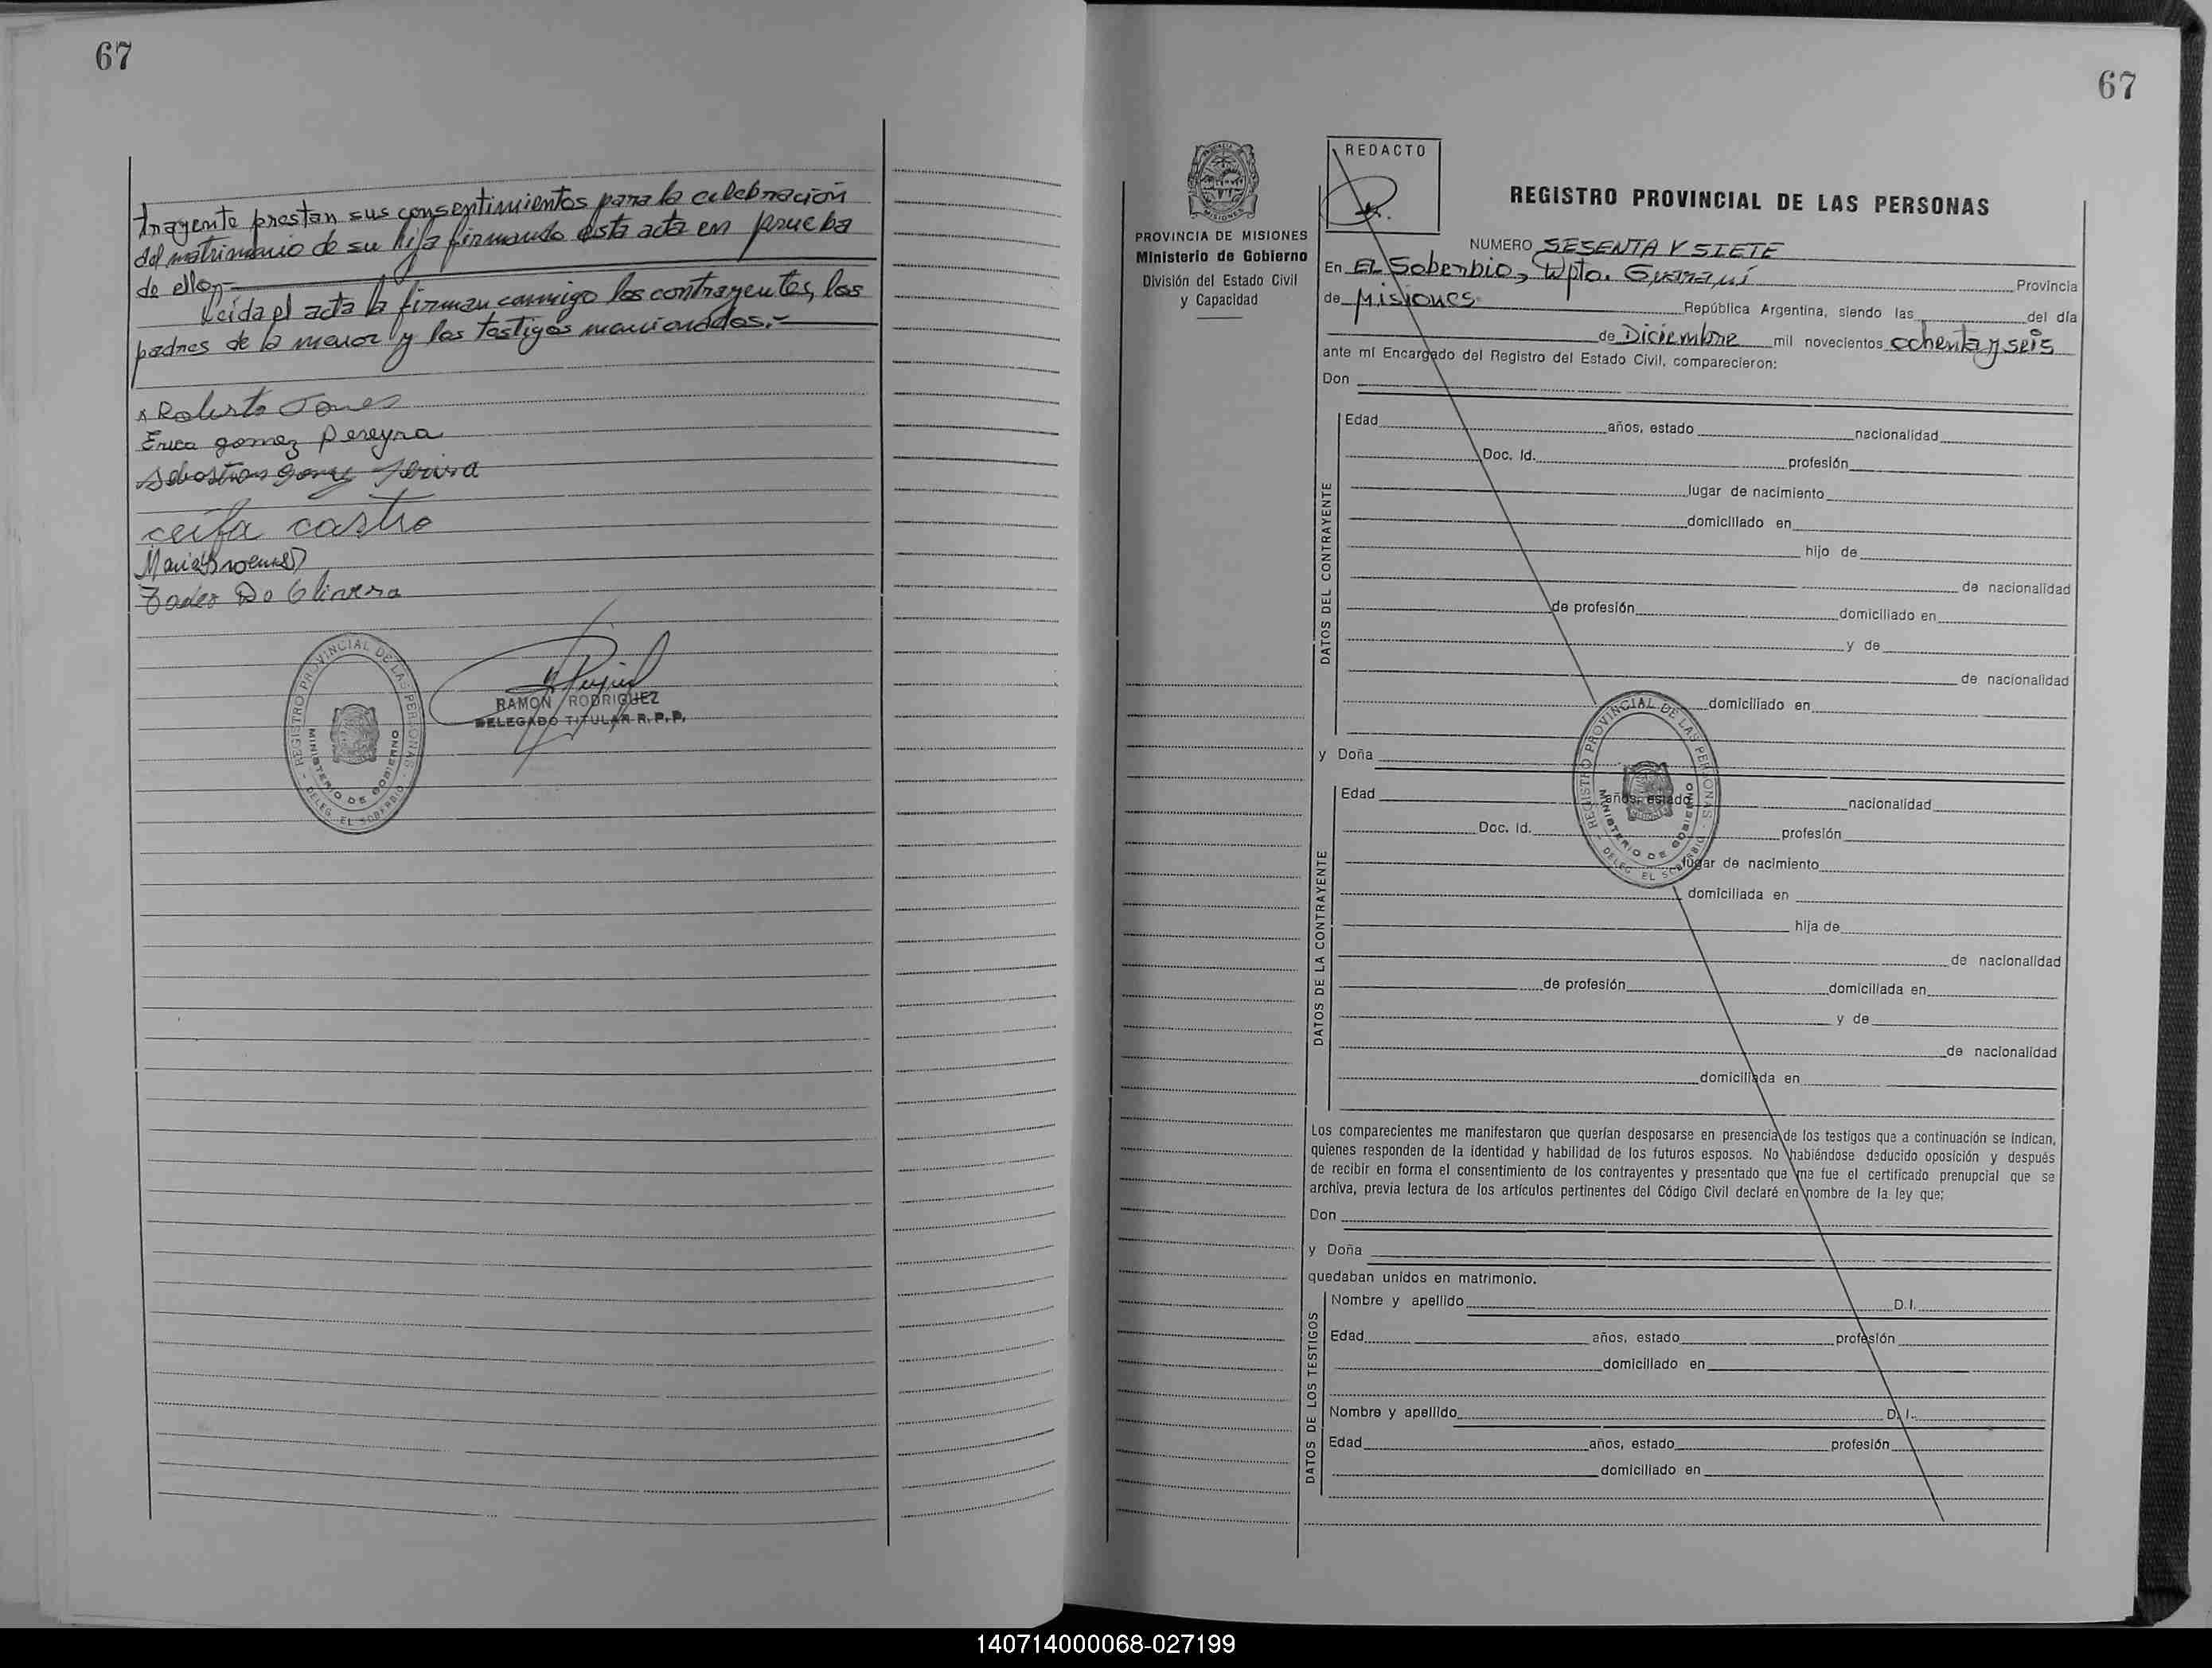 67
trayente prestan sus consentimientos para la celebración
del matrimonio de su hija firmando esta acta en prueba
de ello.-
Leída el acta la firman conmigo los contrayentes, los
padres de la menor y los testigos mencionados.-
Roberto
Erica gomez Pereyra
ceifa castro
Maria
Tadeo Do Olivera
REGISTRO PROVINCIAL DE LAS PERSONAS
MINISTERIO DE GOBIERNO
DELEG. EL SOBERBIO
RAMON RODRIGUEZ
DELEGADO TITULAR R.P.P.
67
PROVINCIA DE MISIONES
Ministerio de Gobierno
División del Estado Civil
y Capacidad
REDACTO
REGISTRO PROVINCIAL DE LAS PERSONAS
NUMERO SESENTA Y SIETE
En EL Soberbio, Dpto. Guaraní Provincia
de Misiones República Argentina, siendo las del día
de Diciembre mil novecientos ochenta y seis
ante mí Encargado del Registro del Estado Civil, comparecieron:
Don
DATOS DEL CONTRAYENTE
Edad años, estado nacionalidad
Doc. Id. profesión
lugar de nacimiento
domiciliado en
hijo de
de nacionalidad
de profesión domiciliado en
y de
de nacionalidad
domiciliado en
y Doña
REGISTRO PROVINCIAL DE LAS PERSONAS
MINISTERIO DE GOBIERNO
DELEG. EL SOBERBIO
DATOS DE LA CONTRAYENTE
Edad años, estado nacionalidad
Doc. Id. profesión
lugar de nacimiento
domiciliada en
hija de
de nacionalidad
de profesión domiciliada en
y de
de nacionalidad
domiciliada en
Los comparecientes me manifestaron que querían desposarse en presencia de los testigos que a continuación se indican,
quienes responden de la identidad y habilidad de los futuros esposos. No habiéndose deducido oposición y después
de recibir en forma el consentimiento de los contrayentes y presentado que me fue el certificado prenupcial que se
archiva, previa lectura de los artículos pertinentes del Código Civil declaré en nombre de la ley que:
Don
y Doña
quedaban unidos en matrimonio.
DATOS DE LOS TESTIGOS
Nombre y apellido D.I.
Edad años, estado profesión
domiciliado en
Nombre y apellido D.I.
Edad años, estado profesión
domiciliado en
140714000068-027199